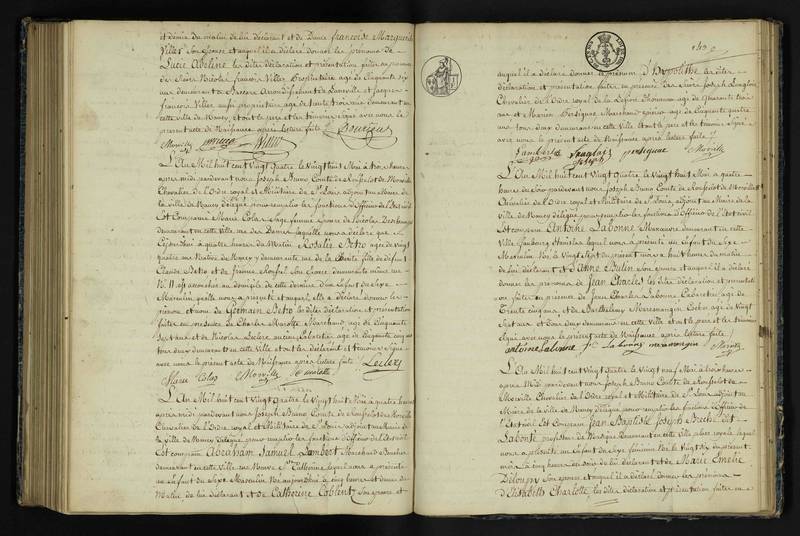 et demie du matin de lui déclarant et de Dame françoise Marguerite
Villet Son Epouse et auquel il a déclaré donner les prénoms de
Lucie Adeline les dites déclaration et présentation faites en présence
de Sieur Nicolas françois Villet Propriétaire agé de Cinquante six
ans demeurant à Arrondissement de Lunéville et Jacques
françois Villet aussi propriétaire agé de trente trois ans demeurant en
cette ville de Nancy, et ont le père et les témoins signé avec nous le
présent acte de Naissance après lecture faite
Morville
L'An Mil huit cent Vingt quatre le Vingt huit Mai à trois heures
après midi pardevant nous Joseph Bruno Comte de Rousselot de Morville
Chevalier de l'Ordre royal et Militaire de St. Louis adjoint au Maire de
la ville de Nancy délégué pour remplir les fonctions d'Officier de l'Etat civil
Est Comparue Marie Colas Sage femme Epouse de Nicolas
demeurant en cette ville rue des Dames laquelle nous a déclaré que
Cejourd'hui à quatre heures du Matin Rosalie Betro agée de vingt
quatre ans Native de Nancy y demeurante rue de la Charité fille de défunt
Claude Betro et de Jeanne Son Epouse demeurante même rue
No. 11 est accouchée au domicile de cette dernière d'un Enfant du Sexe
Masculin qu'elle nous a présenté et auquel elle a déclaré donner les
prénom et nom de Germain Betro les dites déclaration et présentation
faites en présence de Charles Marotte Marchand agé de Cinquante
sept ans et de Nicolas Leclerc ancien Cabaretier agé de Cinquante cinq ans
tous deux demeurant en cette ville et ont les déclarant et témoins signé
avec nous le présent acte de Naissance après lecture faite Leclerc
Marie Colas Morville Marotte
L'An Mil huit cent Vingt quatre le Vingt huit Mai à quatre heures
après midi pardevant nous Joseph Bruno Comte de Rousselot de Morville
Chevalier de l'Ordre royal et Militaire de St. Louis adjoint au Maire de
la ville de Nancy délégué pour remplir les fonctions d'Officier de l'Etat civil
Est comparu Abraham Samuel Lambert Marchand Boucher
demeurant en cette Ville rue Neuve Ste. Catherine lequel nous a présenté
un Enfant du Sexe Masculin Né aujourd'hui à cinq heures et demie du
Matin de lui déclarant et de Catherine Coblentz Son épouse et
143
auquel il a déclaré donner le prénom d'Hyppolithe les dites
déclaration et présentation faites en présence des Sieurs Joseph Langlois
Chevalier de l'Ordre royal de la Légion d'honneur agé de quarante trois
ans et Marion Marchand agé de Cinquante quatre
ans tous deux demeurant en cette Ville et ont le père et les témoins Signé
avec nous le présent acte de Naissance après lecture faite
Lambert Langlois Joseph Morville
L'An Mil huit cent Vingt Quatre le Vingt huit Mai à quatre
heures du Soir pardevant nous Joseph Bruno Comte de Rousselot de Morville
Chevalier de l'Ordre royal et Militaire de St. Louis adjoint au Maire de la
Ville de Nancy délégué pour remplir les fonctions d'Officier de l'Etat civil
Est comparu Antoine Labonne Manœuvre demeurant en cette
Ville faubourg Stanislas lequel nous a présenté un Enfant du Sexe
Masculin Né le Vingt Sept du présent mois à huit heures du matin
de lui déclarant et d'Anne Bulin Son épouse et auquel il a déclaré
donner les prénoms de Jean Charles les dites déclaration et présentation
faites en présence de Jean Charles Labonne Cabaretier agé de
Trente cinq ans et de Barthelemy Cocher agé de Vingt
Sept ans et tous deux demeurant en cette Ville et ont le père et les témoins
Signé avec nous le présent acte de Naissance après lecture faite
antoine labonne J. C. Labonne Morville
L'An Mil huit cent Vingt Quatre le Vingt neuf Mai à trois heures
après Midi pardevant nous Joseph Bruno Comte de Rousselot de
Morville Chevalier de l'Ordre royal et Militaire de St. Louis adjoint au
Maire de la ville de Nancy délégué pour remplir les fonctions d'Officier de
l'Etat civil Est Comparu Jean Baptiste Joseph dit
Labonté professeur de Musique demeurant en cette Ville place royale lequel
nous a présenté un Enfant du Sexe féminin Né le Vingt Six du présent
mois à cinq heures du soir de lui déclarant et de Marie Emélie
Deloupy Son épouse et auquel il a déclaré donner les prénoms
d'Elisabeth Charlotte les dites déclaration et présentation faites en